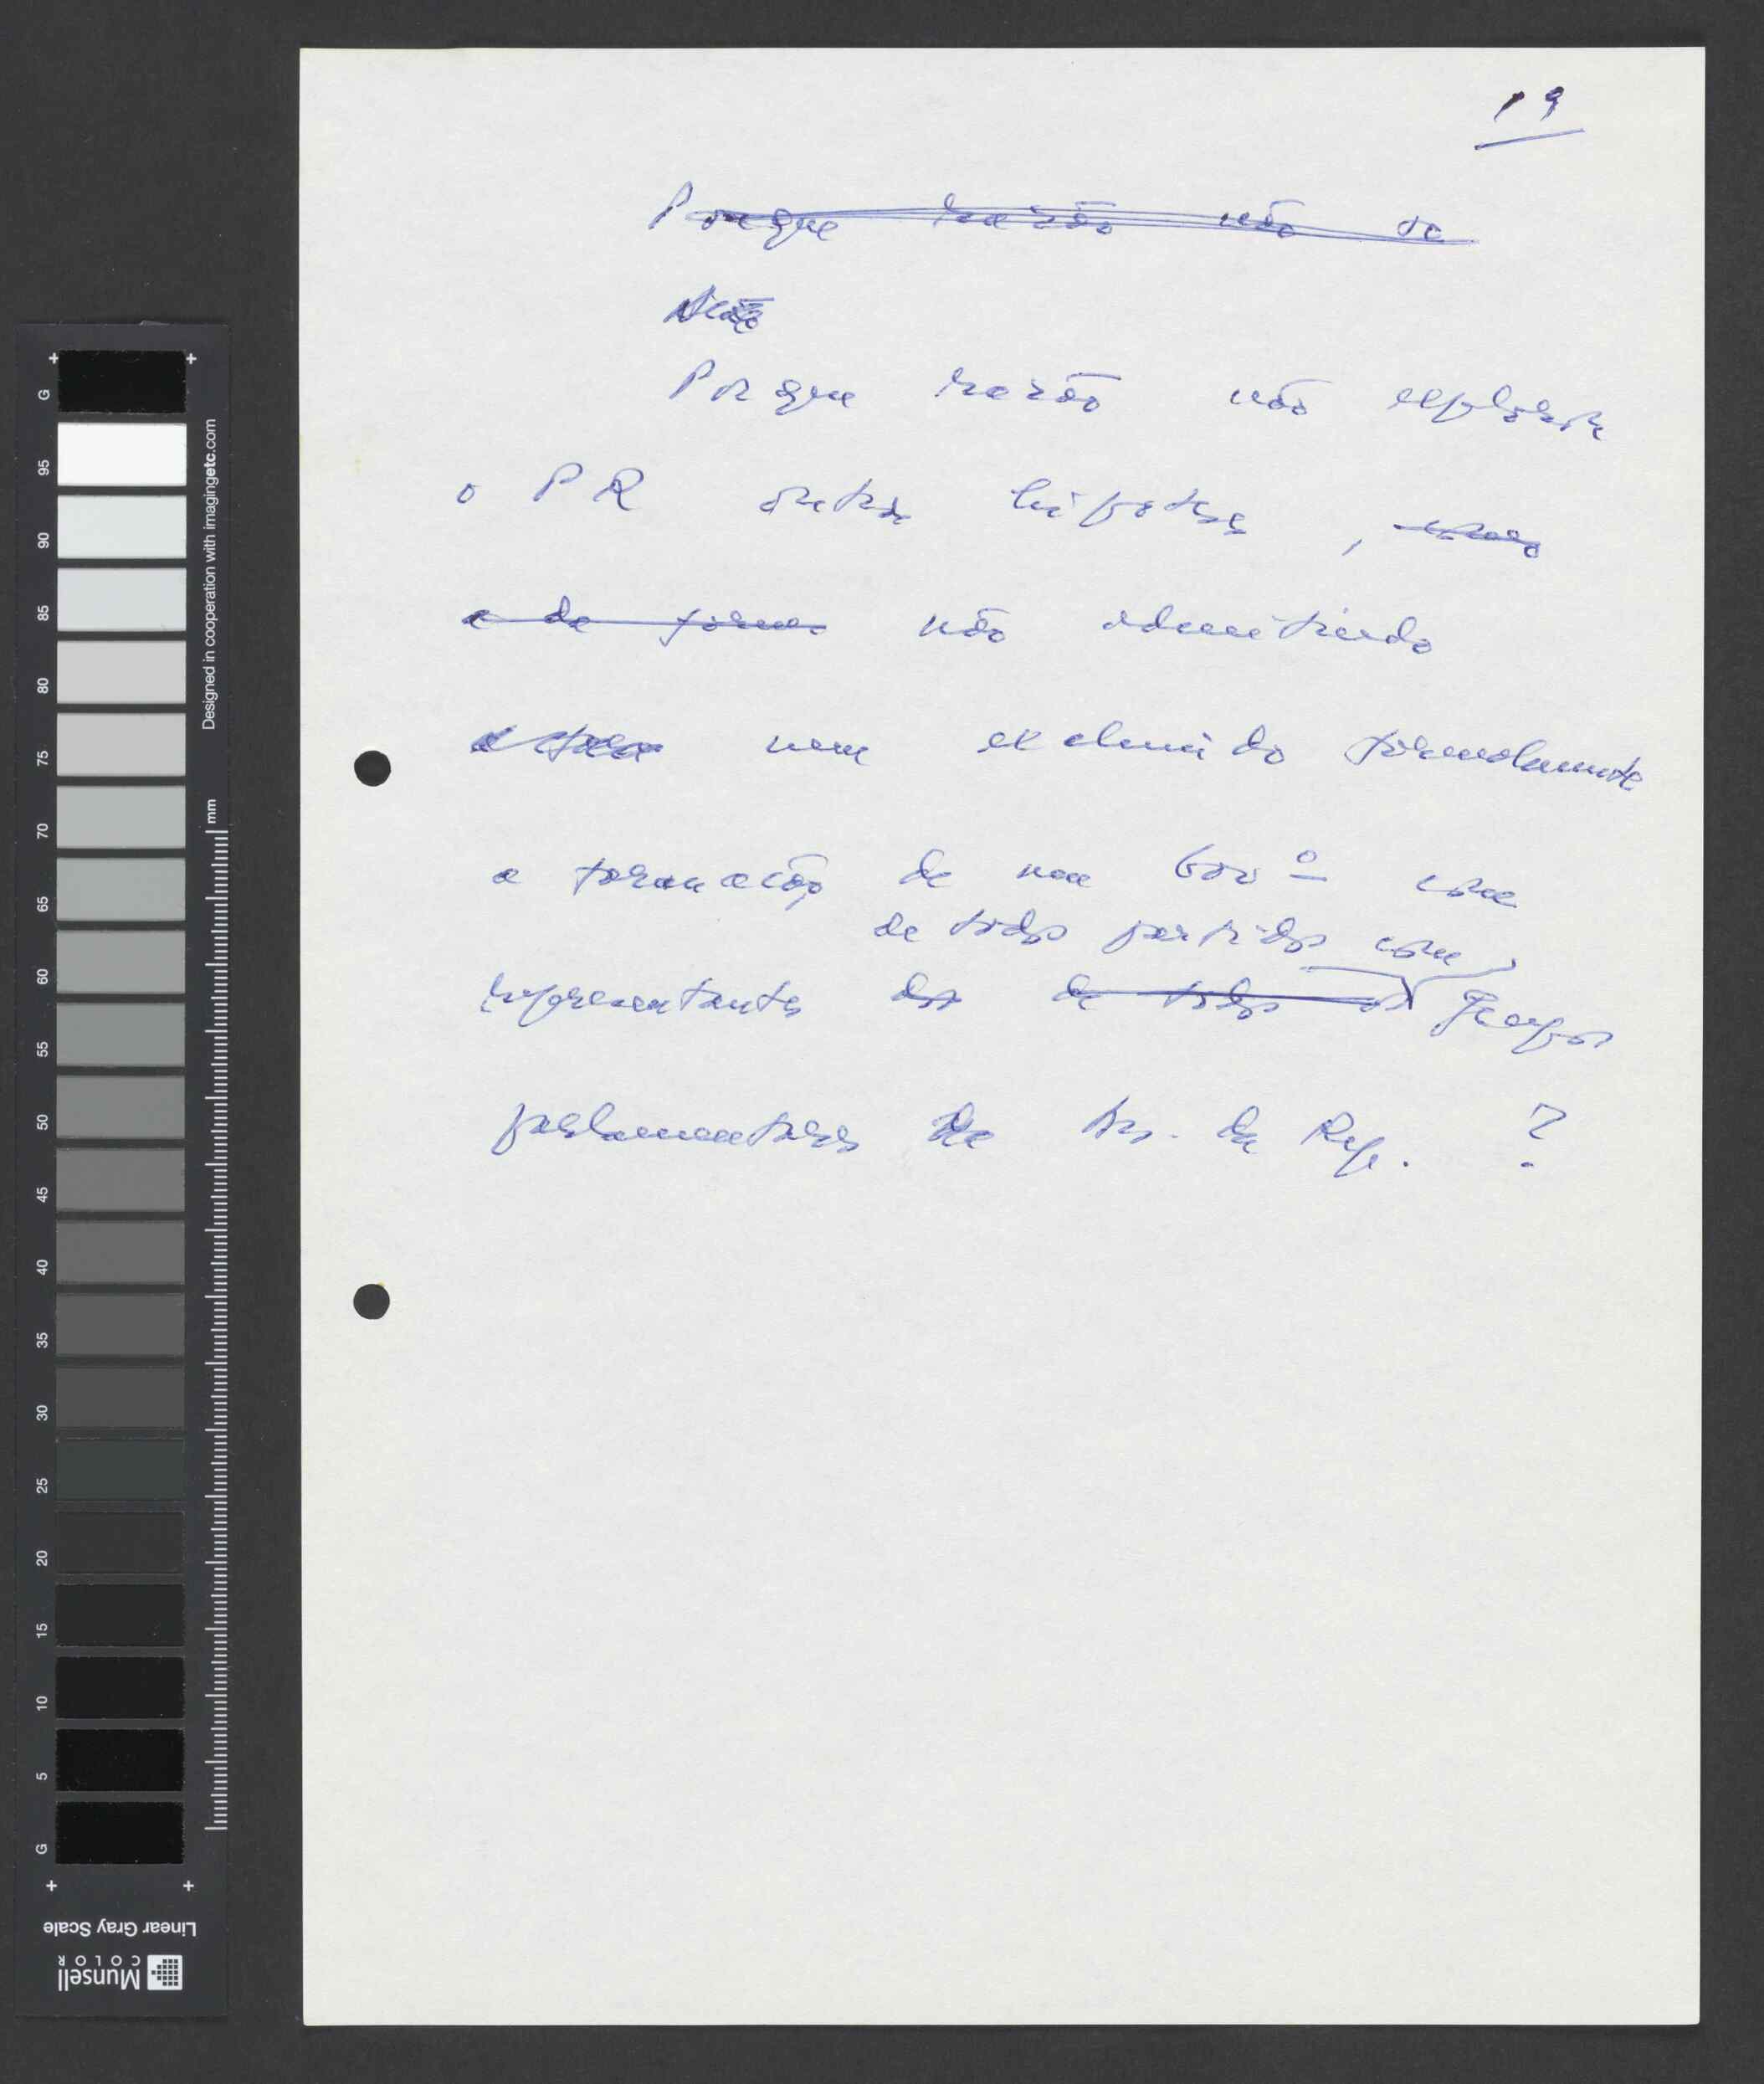 19
Porque razão não se
Porque razão não explora
o PR outras hipóteses, como
a de forma não admitindo
nem excluindo formalmente
a formação de um Govº com
de todos partidos com
representantes dos de todos os grupos
parlamentares da Ass. da Rep. ?
Designed in cooperation with imagingetc.com
mm
G 95 90 85 80 75 70 65 60 55 50 45 40 35 30 25 20 15 10 5 G
Linear Gray Scale
Munsell
COLOR